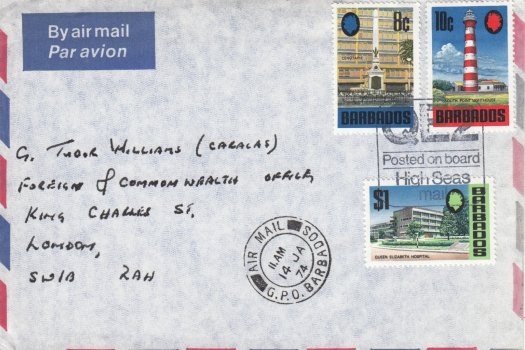 By air mail
Par avion
8c
CENOTAPH
BARBADOS
10c
SOUTH POINT LIGHTHOUSE
BARBADOS
QE2
Posted on board
High Seas
mail
G. TUDOR WILLIAMS (CARACAS)
FOREIGN & COMMONWEALTH OFFICE
KING CHARLES ST,
LONDON,
SW1A 2AH
$1
BARBADOS
QUEEN ELIZABETH HOSPITAL
AIR MAIL
11. AM
14 JA
74
G.P.O. BARBADOS